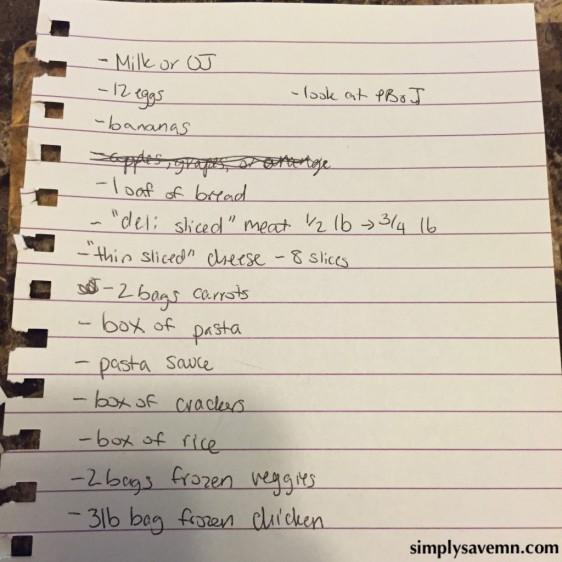 - Milk or OJ
- 12 eggs
- look at PB or J
- bananas
- apples, grapes, or orange
- loaf of bread
- "deli sliced" meat 1/2 lb → 3/4 lb
- "thin sliced" cheese - 8 slices
- 2 bags carrots
- box of pasta
- pasta sauce
- box of crackers
- box of rice
- 2 bags frozen veggies
- 3lb bag frozen chicken
simplysavemn.com